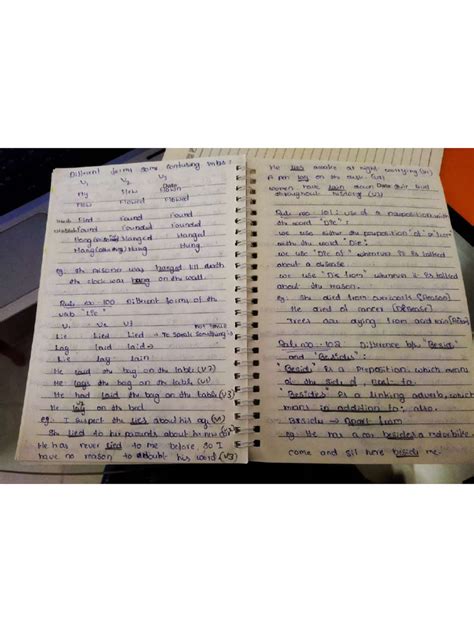 Different forms some confusing verbs:
V1 V2 V3
Fly Flew Flown
Flow Flowed Flowed
Find Found Found
Found Founded Founded
Hang Hanged Hanged
Hang Hung Hung
eg. The prisoner was hanged till death
the clock was hang on the wall.
Rule no-100 Different forms of the
verb "Lie"
V1 V2 V3
Lie Lied Lied → To speak something is not true
Lay laid laid →
Lie lay lain
He laid the bag on the table (V2)
He lays the bag on the table (V1)
He had laid the bag on the table (V3)
He lay on the bed
eg. I suspect the lies about his age (V1)
She lied to his parents about his new
He has never lied to me before, so I
have no reason to doubt his word (V3)
He lies awake at night worrying (V1)
A pen lay on the
women have lain down their
throughout history (V3)
Rule no-101 Use of a preposition with
the word "Die":
we use either the preposition "of"
with the word "Die":
we use "Die of" whenever it is talked
about a disease
we use "Die from" whenever it is talked
about the reason.
eg. She died from overwork (Reason)
He died of cancer (Disease)
Trees are dying from acid rain (Reason)
Rule no-102 Difference b/w "Beside"
and "Besides":
"Beside" is a preposition, which means
at the side of, next to.
"Besides" is a linking adverb, which
means in addition to; also.
Besides → Apart from
eg. He has a car besides a motorbike
come and sit here beside me.